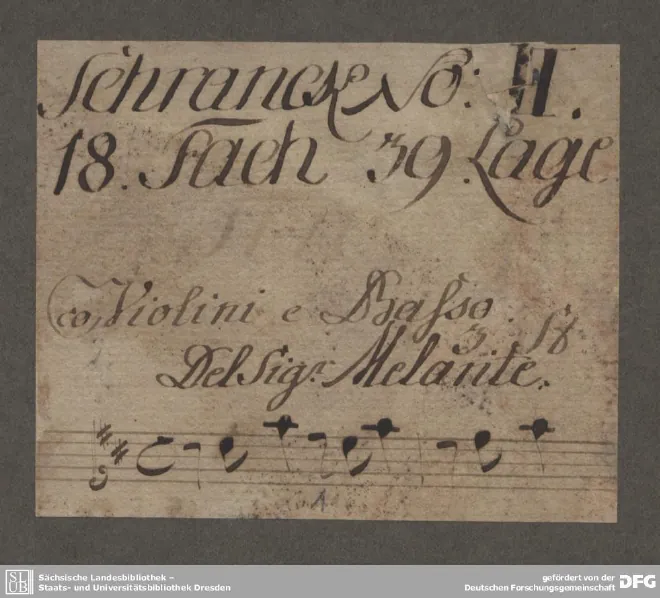 Schranck No: II.
18. Fach 39. Lage.
Violini e Basso.
3 St
Del Sigr. Melante.
SLUB
Sächsische Landesbibliothek –
Staats- und Universitätsbibliothek Dresden
gefördert von der
Deutschen Forschungsgemeinschaft
DFG